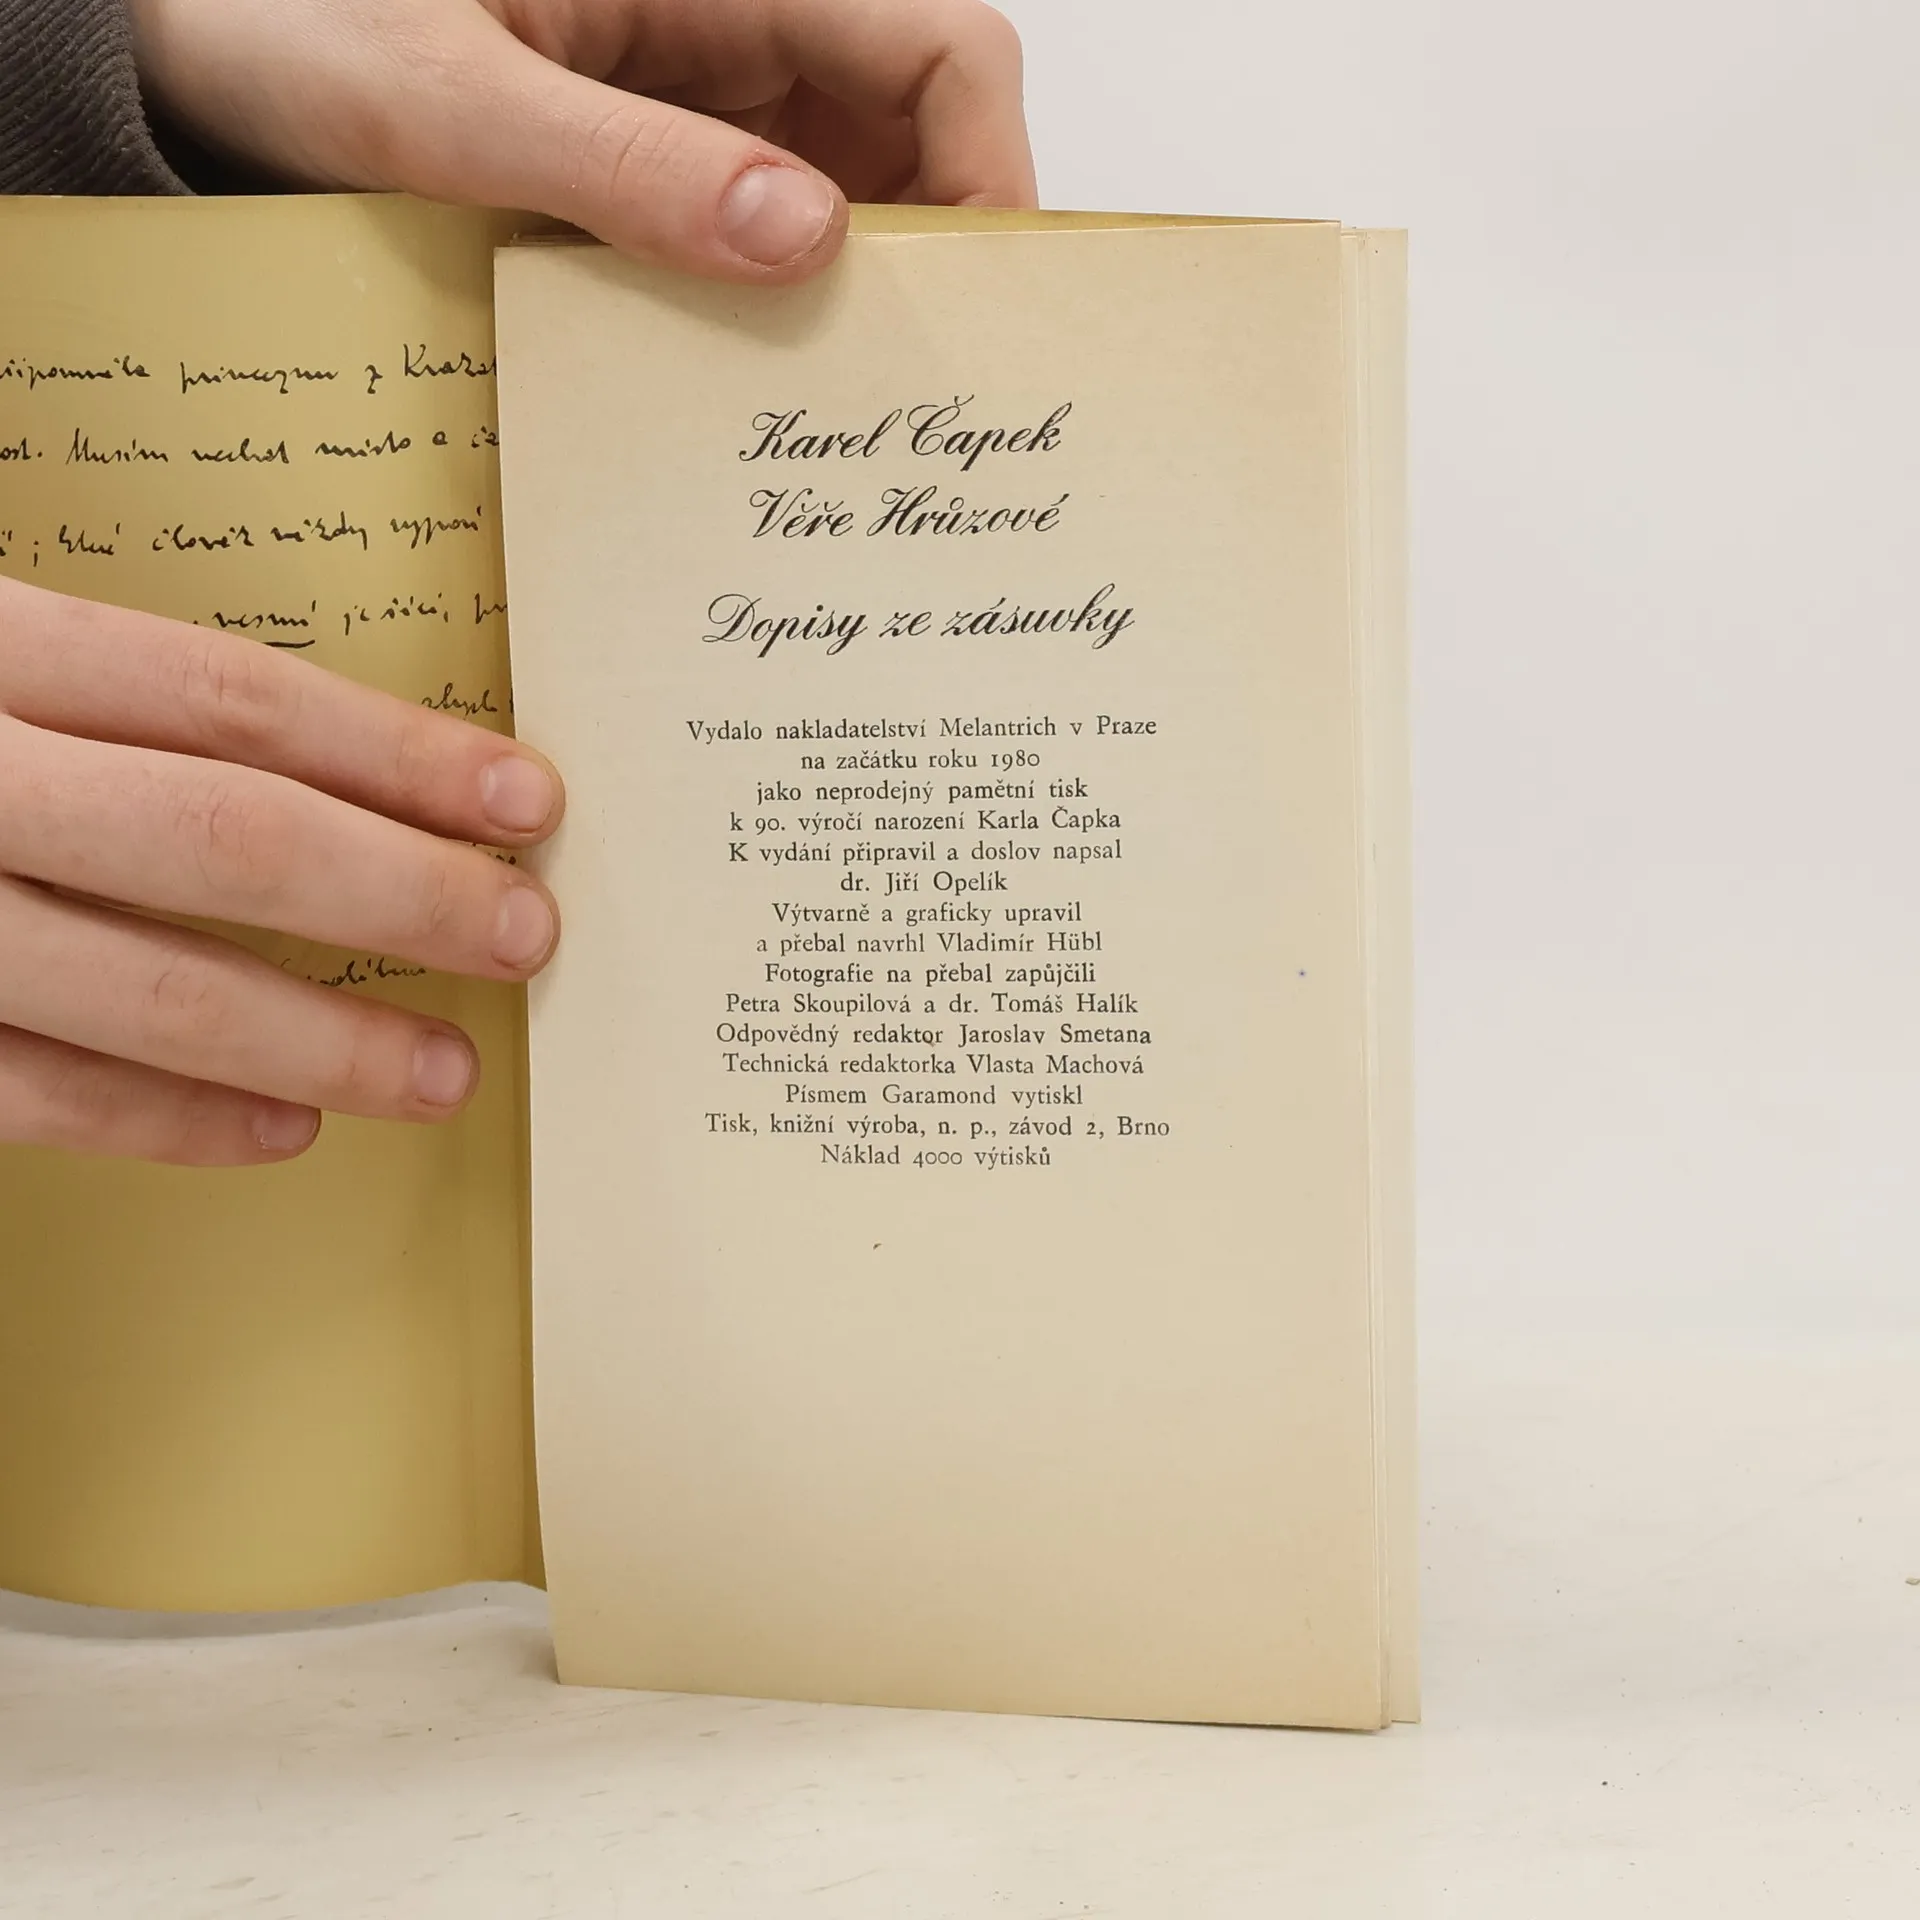 princeznu z
Musím nechat místo a
; člověk vždy
vesmí je
Karel Čapek
Věře Hrůzové
Dopisy ze zásuvky
Vydalo nakladatelství Melantrich v Praze
na začátku roku 1980
jako neprodejný pamětní tisk
k 90. výročí narození Karla Čapka
K vydání připravil a doslov napsal
dr. Jiří Opelík
Výtvarně a graficky upravil
a přebal navrhl Vladimír Hübl
Fotografie na přebal zapůjčili
Petra Skoupilová a dr. Tomáš Halík
Odpovědný redaktor Jaroslav Smetana
Technická redaktorka Vlasta Machová
Písmem Garamond vytiskl
Tisk, knižní výroba, n. p., závod 2, Brno
Náklad 4000 výtisků